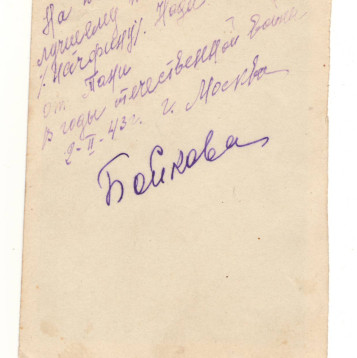 На
лучшему
/Начфину/. Наде
от Тани
в годы отечественной войны
2-II-43г. г. Москва
Бойкова